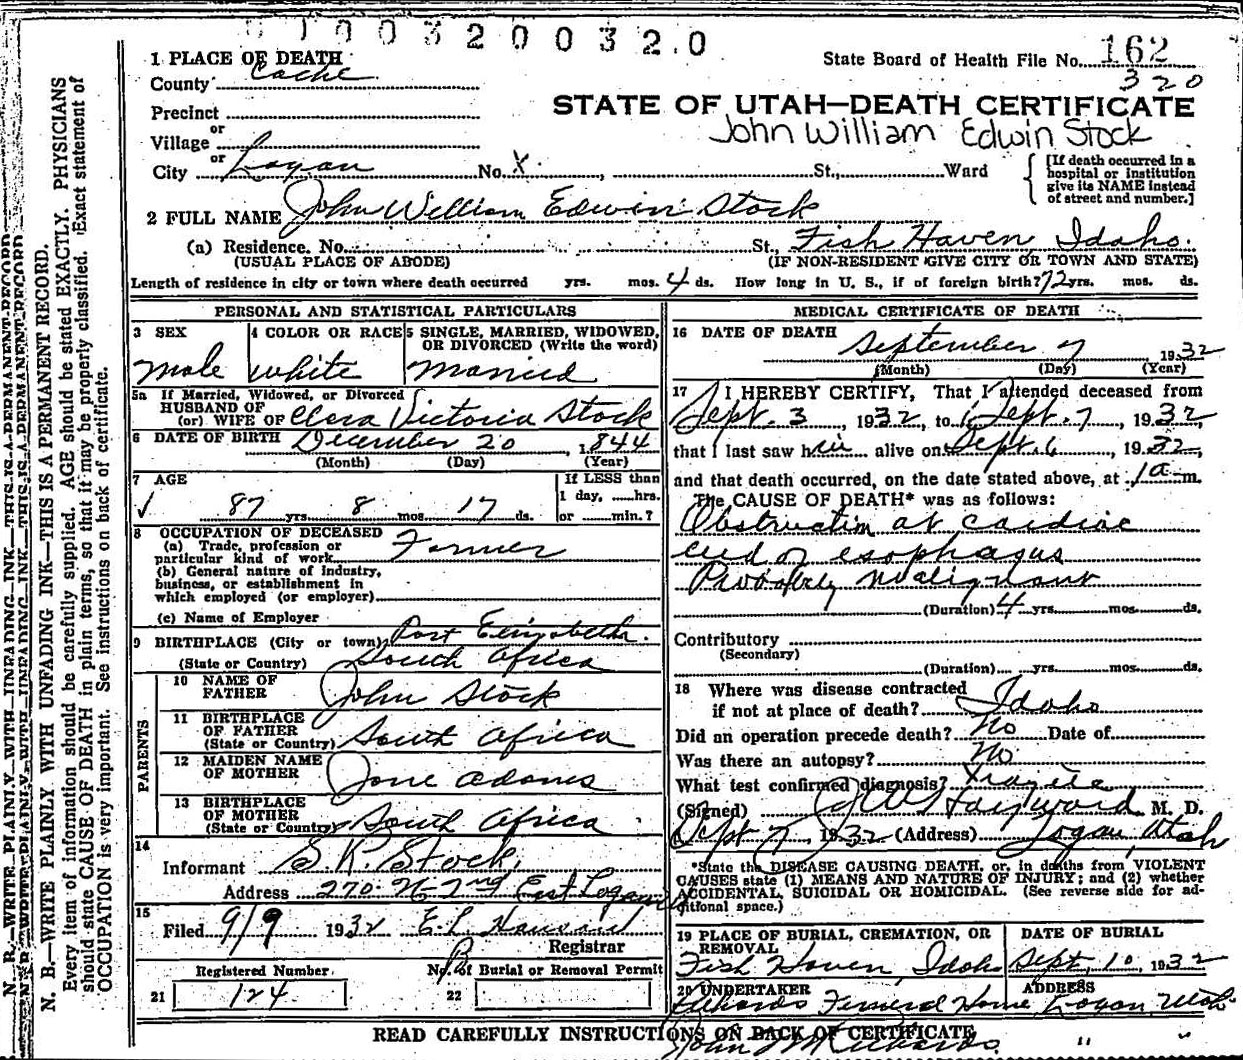 01003200320
1 PLACE OF DEATH
State Board of Health File No. 162
320
County Cache
STATE OF UTAH—DEATH CERTIFICATE
Precinct
or
Village
John William Edwin Stock
or
City Logan No. X St., Ward
[If death occurred in a hospital or institution give its NAME instead of street and number.]
2 FULL NAME John William Edwin Stock
(a) Residence. No. St., Fish Haven, Idaho.
(USUAL PLACE OF ABODE) (IF NON-RESIDENT GIVE CITY OR TOWN AND STATE)
Length of residence in city or town where death occurred yrs. mos. 4 ds. How long in U. S., if of foreign birth? 72 yrs. mos. ds.
PERSONAL AND STATISTICAL PARTICULARS
3 SEX 4 COLOR OR RACE 5 SINGLE, MARRIED, WIDOWED,
OR DIVORCED (Write the word)
Male White Married
5a If Married, Widowed, or Divorced
HUSBAND OF
(or) WIFE OF Clara Victoria Stock
6 DATE OF BIRTH December 20, 1844
(Month) (Day) (Year)
7 AGE If LESS than
1 day, hrs.
87 yrs 8 mos 17 ds. or min.?
8 OCCUPATION OF DECEASED
(a) Trade, profession or
particular kind of work Farmer
(b) General nature of industry,
business, or establishment in
which employed (or employer)
(c) Name of Employer
9 BIRTHPLACE (City or town) Port Elizabeth.
(State or Country) South Africa
PARENTS
10 NAME OF
FATHER John Stock
11 BIRTHPLACE
OF FATHER
(State or Country) South Africa
12 MAIDEN NAME
OF MOTHER Jane Adams
13 BIRTHPLACE
OF MOTHER
(State or Country) South Africa
14
Informant S. K. Stock,
Address 270 N-2nd East Logan
15
Filed 9/9 1932
Registrar
Registered Number No. of Burial or Removal Permit
21 124 22
MEDICAL CERTIFICATE OF DEATH
16 DATE OF DEATH
September 7 1932
(Month) (Day) (Year)
17 I HEREBY CERTIFY, That I attended deceased from
Sept. 3, 1932, to Sept. 7, 1932,
that I last saw him alive on Sept. 6, 1932,
and that death occurred, on the date stated above, at 1 a m.
The CAUSE OF DEATH* was as follows:
Obstruction at cardiac
end of esophagus
Probably malignant
(Duration) 4 yrs. mos. ds.
Contributory
(Secondary)
(Duration) yrs. mos. ds.
18 Where was disease contracted
if not at place of death? Idaho
Did an operation precede death? No Date of
Was there an autopsy? No
What test confirmed diagnosis?
(Signed) J W Hayward M. D.
Sept 7, 1932 (Address) Logan, Utah
*State the DISEASE CAUSING DEATH, or, in deaths from VIOLENT
CAUSES state (1) MEANS AND NATURE OF INJURY; and (2) whether
ACCIDENTAL, SUICIDAL OR HOMICIDAL. (See reverse side for ad-
ditional space.)
19 PLACE OF BURIAL, CREMATION, OR
REMOVAL
DATE OF BURIAL
Fish Haven, Idaho Sept, 10, 1932
20 UNDERTAKER ADDRESS
Richards Funeral Home Logan, Utah
READ CAREFULLY INSTRUCTIONS ON BACK OF CERTIFICATE
John M Richards. " "
N. B.—WRITE PLAINLY WITH UNFADING INK—THIS IS A PERMANENT RECORD
N. B.—WRITE PLAINLY WITH UNFADING INK—THIS IS A PERMANENT RECORD.
Every item of information should be carefully supplied. AGE should be stated EXACTLY. PHYSICIANS
should state CAUSE OF DEATH in plain terms, so that it may be properly classified. Exact statement of
OCCUPATION is very important. See instructions on back of certificate.